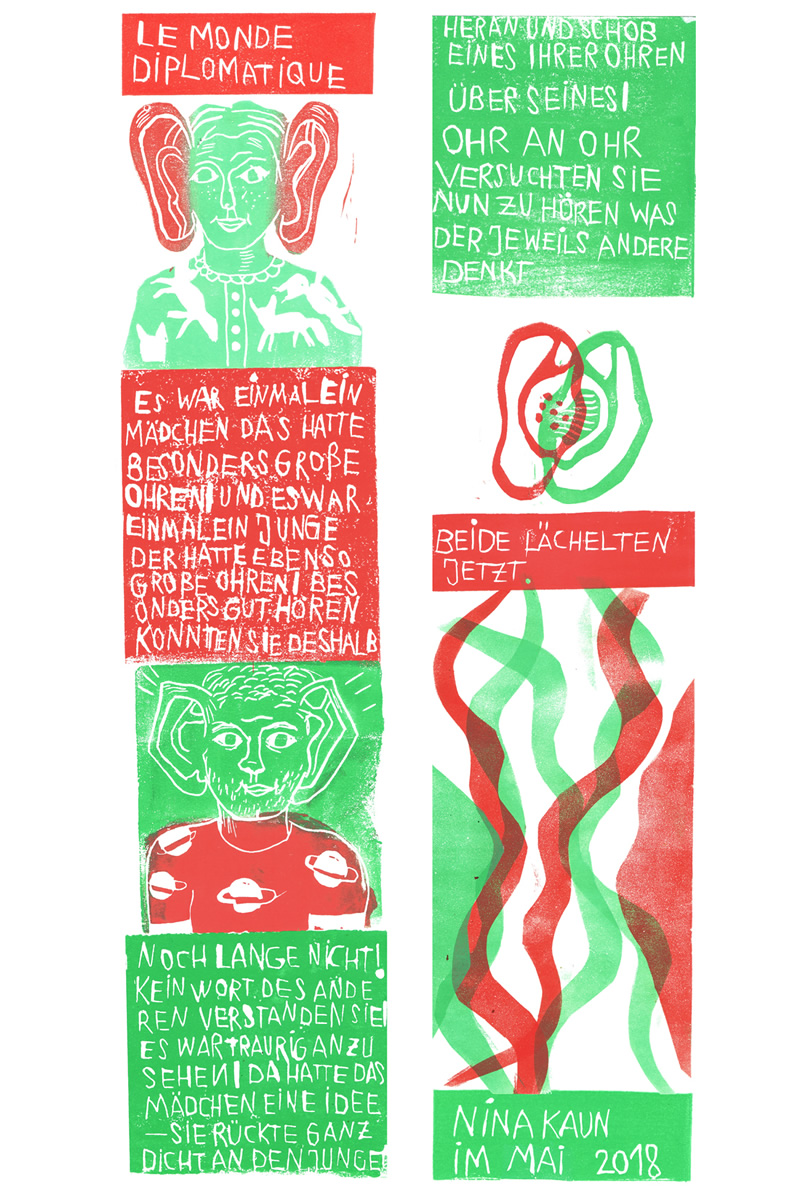 LE MONDE
DIPLOMATIQUE
ES WAR EINMALEIN
MÄDCHEN DAS HATTE
BESONDERS GROßE
OHREN| UND ES WAR
EINMALEIN JUNGE
DER HATTE EBENSO
GROßE OHREN| BES
ONDERS GUT HÖREN
KONNTEN SIE DESHALB
NOCH LANGE NICHT!
KEIN WORT DES ANDE
REN VERSTANDEN SIE|
ES WAR TRAURIG ANZU
SEHEN| DA HATTE DAS
MÄDCHEN EINE IDEE
— SIE RÜCKTE GANZ
DICHT AN DEN JUNGE
HERAN UND SCHOB
EINES IHRER OHREN
ÜBER SEINES|
OHR AN OHR
VERSUCHTEN SIE
NUN ZU HÖREN WAS
DER JEWEILS ANDERE
DENKT
BEIDE LÄCHELTEN
JETZT.
NINA KAUN
IM MAI 2018